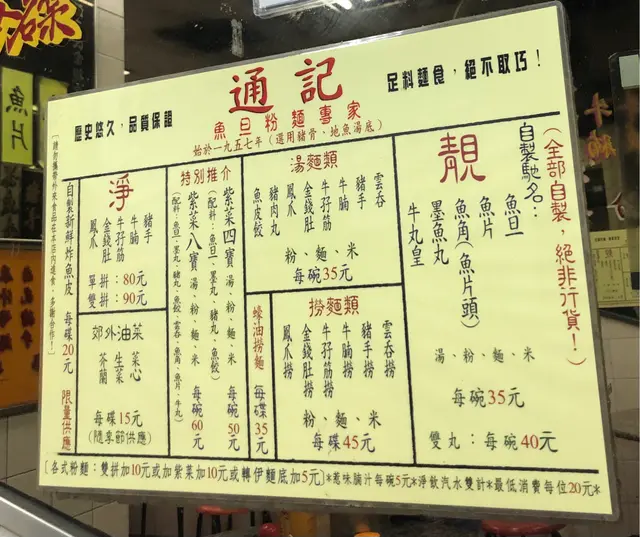 足料麵食，絕不取巧！
通記
歷史悠久，品質保證
魚旦粉麵專家
始於一九五七年（選用豬骨、地魚湯底）
靚
（全部自製，絕非行貨！）
自製馳名：
魚旦
魚片
魚角（魚片頭）
墨魚丸
牛丸皇
湯、粉、麵、米
每碗35元
雙丸：每碗40元
湯麵類
雲吞
豬手
牛腩
牛孖筋
金錢肚
豬肉丸
魚皮餃
粉、麵、米
每碗35元
撈麵類
雲吞撈
豬手撈
牛腩撈
牛孖筋撈
金錢肚撈
鳳爪撈
粉、麵、米
每碟45元
蠔油撈麵 每碟35元
特別推介
紫菜四寶 湯、粉、麵、米 每碗50元
（配料：魚旦、墨丸、豬丸、魚餃）
紫菜八寶 湯、粉、麵、米 每碗60元
（配料：魚旦、墨丸、豬丸、魚餃、雲吞、魚角、魚片、牛丸）
淨
豬手
牛腩
牛孖筋
金錢肚
鳳爪
單拼：80元
雙拼：90元
郊外油菜
菜心
生菜
芥蘭
每碟15元
（隨季節供應）
自製新鮮炸魚皮 每碟20元 限量供應
［請勿攜帶外來食品在本店內進食，多謝合作！］
［各式粉麵：雙拼加10元或加紫菜加10元或轉伊麵底加5元］*惹味腩汁每碗5元*淨飲汽水雙計*最低消費每位20元*
魚片